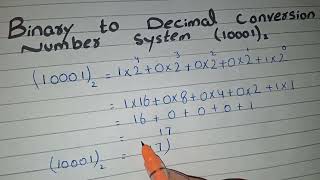 Binary to Decimal Conversion
Number System (10001)₂
(10001)₂ = 1×2⁴+0×2³+0×2²+0×2¹+1×2⁰
= 1×16+0×8+0×4+0×2+1×1
= 16 + 0 + 0 + 0 + 1
= 17
(10001)₂ = 7)